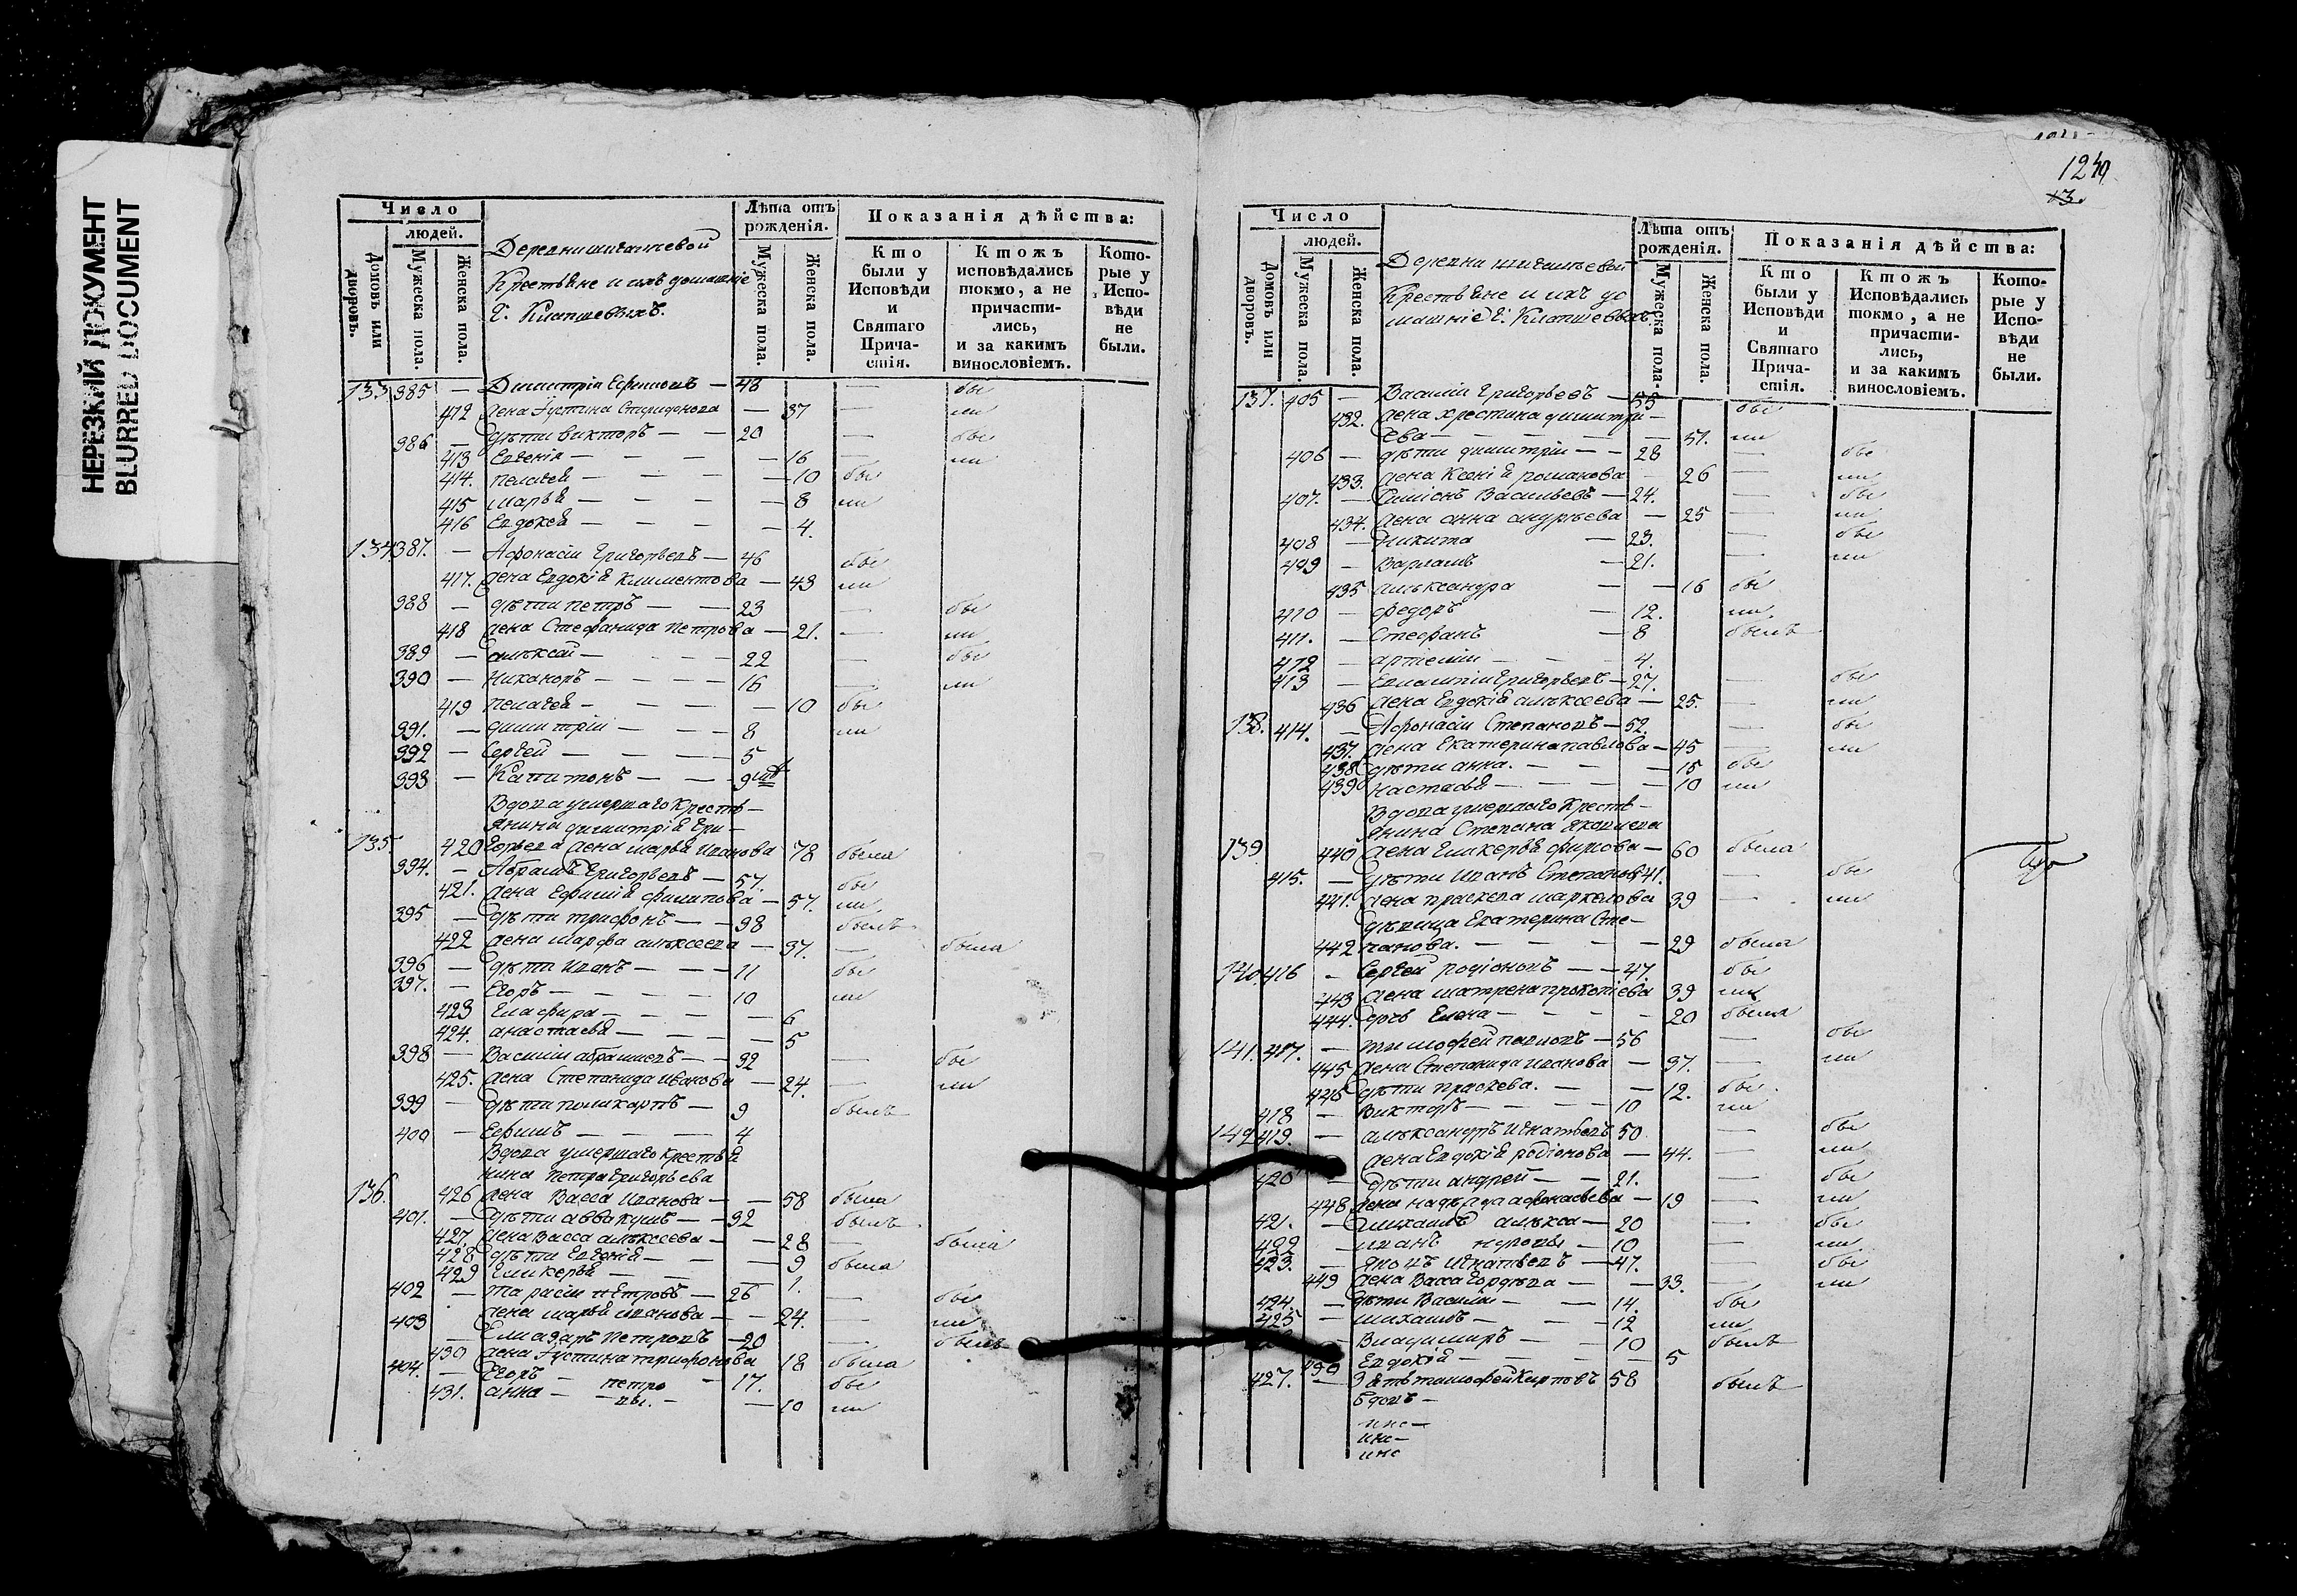 НЕРЕЗКИЙ ДОКУМЕНТ
BLURRED DOCUMENT
Число
людей.
Домовъ или дворовъ.
Мужеска пола.
Женска пола.
Деревни
Крестьяне и ихъ домашніе
Лѣта отъ рожденія.
Мужеска пола.
Женска пола.
Показанія дѣйства:
Кто были у Исповѣди и Святаго Причастія.
Ктожъ исповѣдались токмо, а не причастились, и за какимъ винословіемъ.
Которые у Исповѣди не были.
133 385 — Димитрій Ефимовъ — 48 — бы
412 жена Густина Спиридонова — 37 — ли
386 — дѣти Викторъ — — 20 — бы
413 Евгенія — — — 16 — ли
414. Пелагея — — — 10 бы
415 Марья — — — 8 ли
416 Евдокея — — — 4.
134 387. — Афонасій Григорьевъ — 46 бы
417. жена Евдокія Климентова — 43 ли
388 — дѣти Петръ — — 23 — бы
418 жена Стефанида Петрова — 21. — ли
389 — Алексѣй — — 22 — бы
390 — Никаноръ — — — 16 — ли
419 Пелагея — — — 10 бы
391. — Димитрій — — — 8 ли
392 — Сергей — — — 5
393 — Капитонъ — — 9
Вдова умершаго Кресть-
янина Димитрія Гри-
135. 420 горьева жена Марья Иванова 78 была
394. — Абрамъ Григорьевъ — 57. бы
421. жена Ефимія Филипова — 57. ли
395 — дѣти Трифонъ — — 38 былъ
422 жена Марфа Алексеева — 37. — была
396 — дѣти Иванъ — — 11 бы
397. — Егоръ — — — 10 ли
423 Гласфира — — — 6
424. Анастасья — — — 5
398 — Василій Абрамовъ — — 32 — бы
425. жена Степанида Иванова — 24. — ли
399 — дѣти Поликарпъ — 9 былъ
400 — Ефимъ — — — 4
Вдова умершаго крестья-
нина Петра Григорьева
136. 426 жена Васса Иванова — — 58 была
401. — дѣти Аввакумъ — — 32 былъ
427. жена Васса Алексеева — — 28 — была
428 дѣти Евгенія — — — 9 была
429 Гликерья — — 1.
402 — Тарасій Петровъ — 26 — бы
жена Марья Иванова — — 24. — ли
403 — Елиазаръ Петровъ — 20 — былъ
430 жена Густина Трифонова 18 была
404. — Егоръ — петро — 17. бы
431. Анна — вы. — — 10 ли
124
13.
Число
людей.
Домовъ или дворовъ.
Мужеска пола.
Женска пола.
Деревни
Крестьяне и ихъ до
машніе
Лѣта отъ рожденія.
Мужеска пола.
Женска пола.
Показанія дѣйства:
Кто были у Исповѣди и Святаго Причастія.
Ктожъ Исповѣдались токмо, а не причастились, и за какимъ винословіемъ.
Которые у Исповѣди не были.
137. 405 — Василій Григорьевъ — 55 бы
432. жена Христина Димитри-
ева — — — — 51. ли
406 — дѣти Димитрій — — 28 — бы
433. жена Ксенія Романова — 26 — ли
407. — Симіонъ Васильевъ — 24. — бы
434. жена Анна Андреева — 25 — ли
408 — Никита — 23. — бы
409 — Варламъ — 21. — ли
435 Александра — — 16 бы
410 — Федоръ — 12. ли
411. — Стефанъ — 8 былъ
412 — Артемій — — — 4.
413 — Григорьевъ — 27. — бы
436 жена Евдокія Алексеева — 25. — ли
138. 414. — Афонасій Степановъ — 52. — бы
437. жена Екатерина Павлова — 45 — ли
438 дѣти Анна. — — — 15 бы
439 Настасья — — — 10 ли
Вдова умершаго Кресть-
янина Степана Яковлева
139. 440 жена Гликерья Фирсова — 60 была
415. — дѣти Иванъ Степановъ 41. — бы
441. жена Праскева Маркелова 39 — ли
дѣвица Екатерина Сте-
442 панова. — — — — 29 была
140. 416 — Сергей Родіоновъ — — 47. бы
443 жена Матрена Прокопіева 39 ли
444. дочь Елена — — — — 20 была
141. 417. — Тимофей Павловъ — 56 — бы
445 жена Степанида Иванова — 37. — ли
446 дѣти Праскева. — — 12. бы
418 — Викторъ — — — 10 ли
142 419. — Александръ Игнатьевъ 50 — бы
жена Евдокія Родіонова — 44. — ли
420 — дѣти Андрей — — 21. — бы
448 жена Надежда Афанасьева — 19 — ли
421. — Михаилъ алекса — 20 — бы
422 — Иванъ ндровы — 10 — ли
423. — Яковъ Игнатьевъ — 47. — бы
449 жена Васса Гордѣева — — 33. — ли
424. — дѣти Василій — — 14. бы
425 — Михаилъ — — — 12 ли
— Владимиръ — — 10 былъ
450 Евдокія — — — — 5
427. — Зять Тимофей Карповъ 58 былъ
вдовъ —